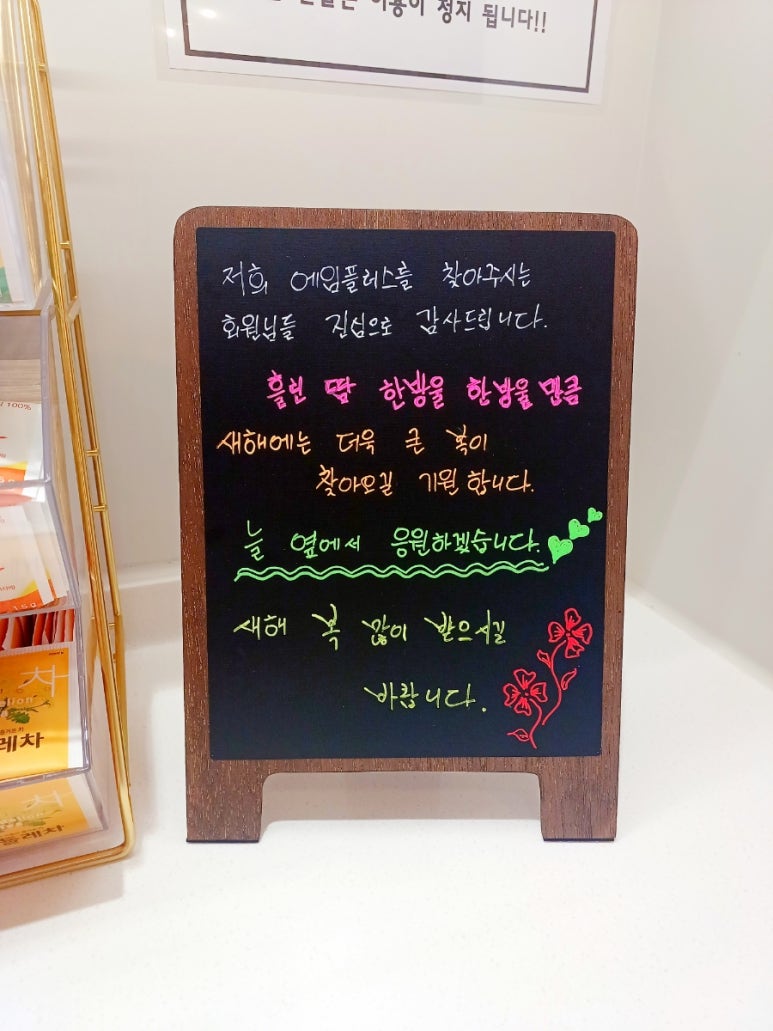 이용이 정지 됩니다!!
저희 에임플러스를 찾아주시는
회원님들 진심으로 감사드립니다.
흘린 땀 한방울 한방울 만큼
새해에는 더욱 큰 복이
찾아오길 기원합니다.
늘 옆에서 응원하겠습니다.
새해 복 많이 받으시길
바랍니다.
100%
차
레차
차
둘레차